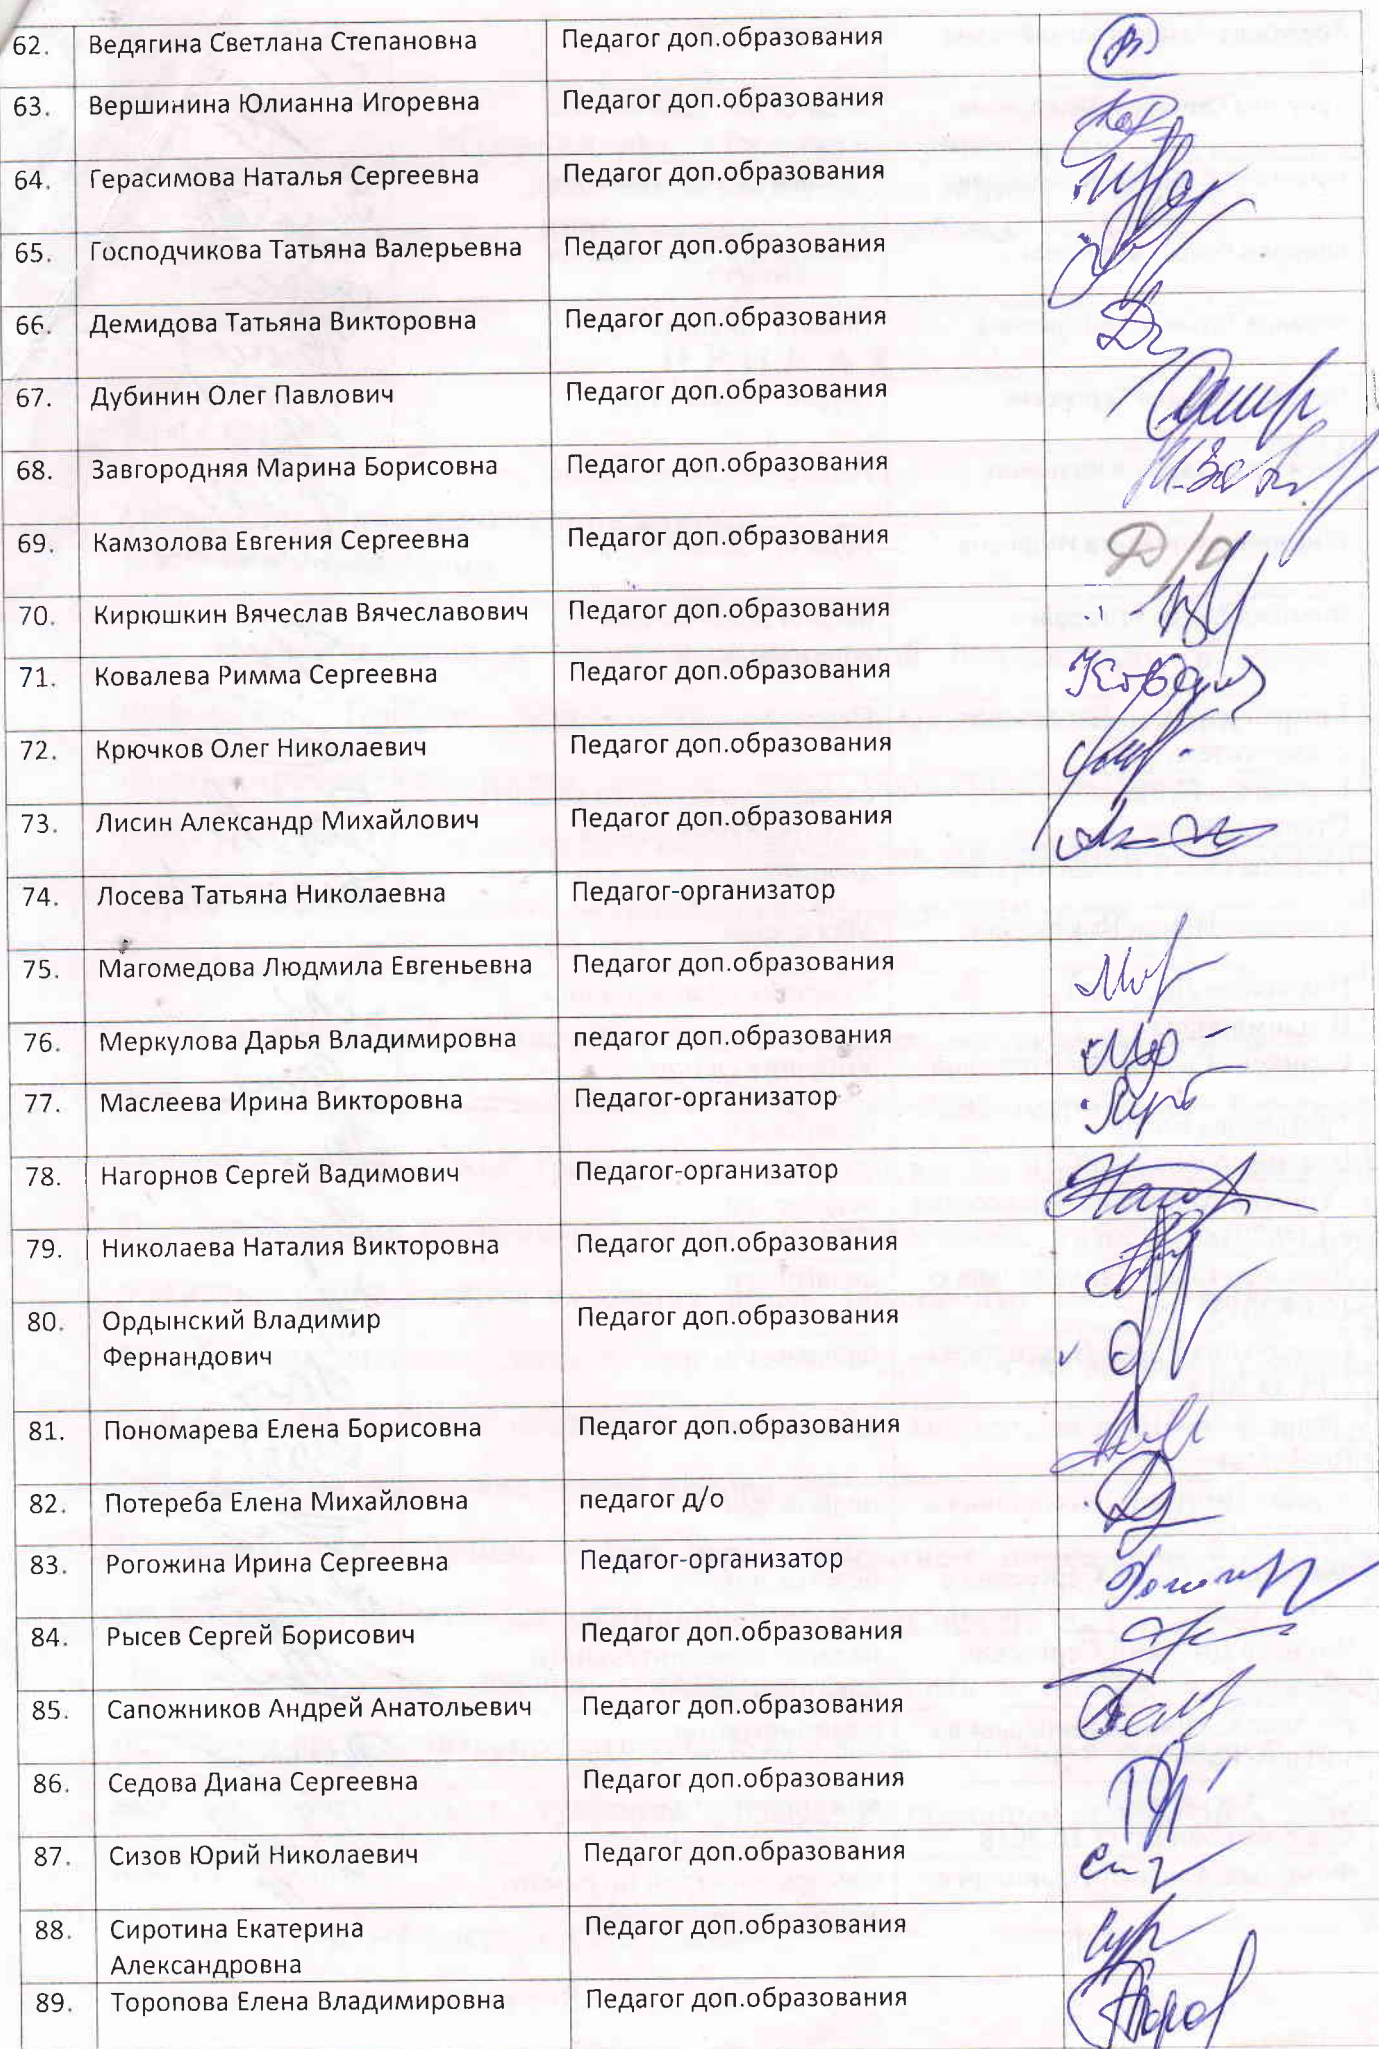 62. Ведягина Светлана Степановна Педагог доп.образования
63. Вершинина Юлианна Игоревна Педагог доп.образования
64. Герасимова Наталья Сергеевна Педагог доп.образования
65. Господчикова Татьяна Валерьевна Педагог доп.образования
66. Демидова Татьяна Викторовна Педагог доп.образования
67. Дубинин Олег Павлович Педагог доп.образования
68. Завгородняя Марина Борисовна Педагог доп.образования
69. Камзолова Евгения Сергеевна Педагог доп.образования Д/о
70. Кирюшкин Вячеслав Вячеславович Педагог доп.образования
71. Ковалева Римма Сергеевна Педагог доп.образования
72. Крючков Олег Николаевич Педагог доп.образования
73. Лисин Александр Михайлович Педагог доп.образования
74. Лосева Татьяна Николаевна Педагог-организатор
75. Магомедова Людмила Евгеньевна Педагог доп.образования
76. Меркулова Дарья Владимировна педагог доп.образования
77. Маслеева Ирина Викторовна Педагог-организатор
78. Нагорнов Сергей Вадимович Педагог-организатор
79. Николаева Наталия Викторовна Педагог доп.образования
80. Ордынский Владимир Педагог доп.образования
Фернандович
81. Пономарева Елена Борисовна Педагог доп.образования
82. Потереба Елена Михайловна педагог д/о
83. Рогожина Ирина Сергеевна Педагог-организатор
84. Рысев Сергей Борисович Педагог доп.образования
85. Сапожников Андрей Анатольевич Педагог доп.образования
86. Седова Диана Сергеевна Педагог доп.образования
87. Сизов Юрий Николаевич Педагог доп.образования
88. Сиротина Екатерина Педагог доп.образования
Александровна
89. Торопова Елена Владимировна Педагог доп.образования